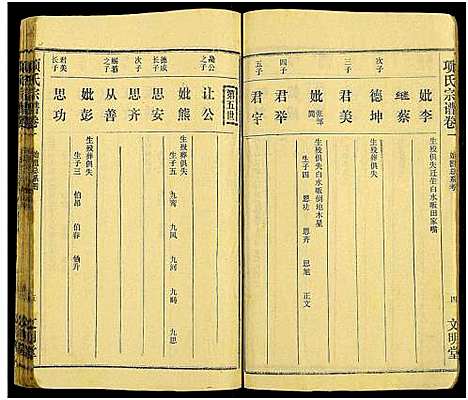 项氏宗谱卷
四
文明堂
妣李
生殁葬俱失迁生白水畈田家嘴
继蔡
次子
德坤
三子
君美
妣
生殁葬俱失白水畈倒地木星
生子四 思功 思齐 思旭 正文
四子
君举
五子
君宇
第五世
让公
妣熊
生殁葬俱失
生子五 九鸾 九凤 九河 九畴 九思
德成长子
思安
次子
思齐
之子
从善
妣彭
生殁葬俱失
生子三 伯昂 伯春 伯升
君美长子
思功
项氏宗谱卷
文明堂